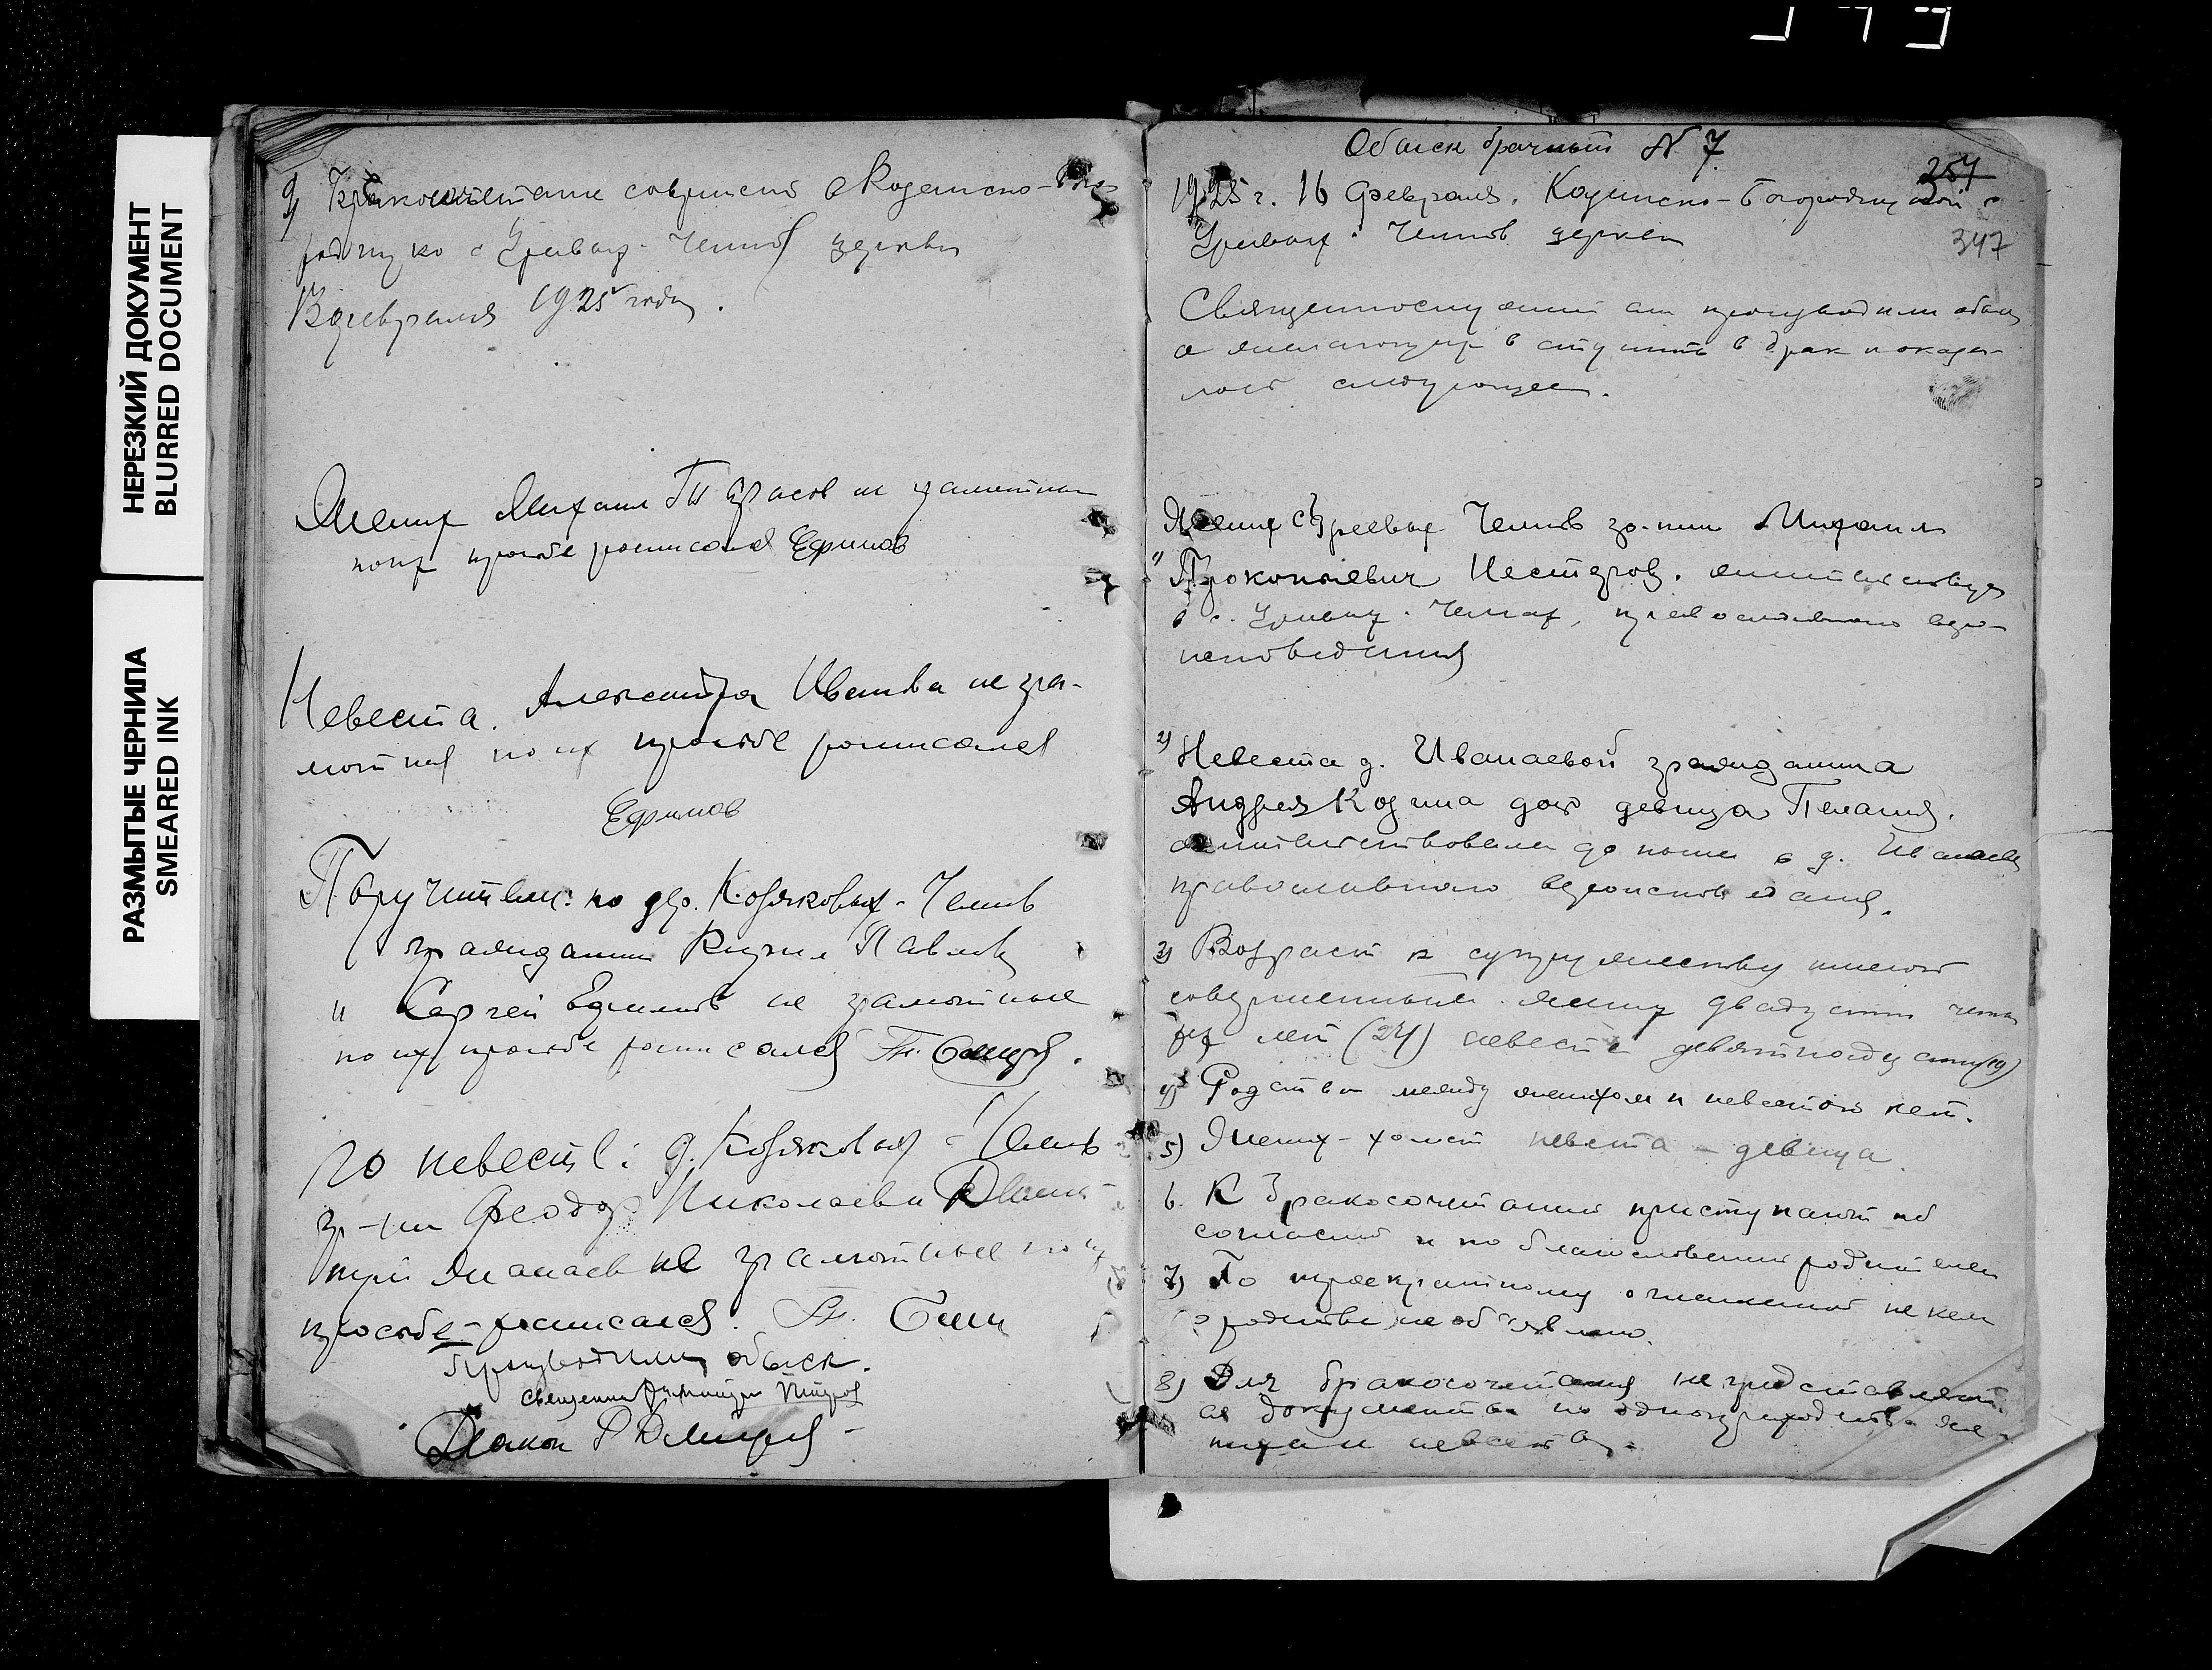 НЕРЕЗКИЙ ДОКУМЕНТ
BLURRED DOCUMENT
РАЗМЫТЫЕ ЧЕРНИЛА
SMEARED INK
9) Бракосочетание совершено в Казанско-Бого-
родицкой с Челнов церкви
февраля 1925 года.
Жених Михаил не грамотный
по их просьбе росписался Ефимов
Невеста. Александра Иванова не гра-
мотная по их просьбе росписался
Ефимов
Поручители: по дер. Коряковых-Челнов
гражданин Кирил Павлов
и Сергей Ефимов не грамотные
по их просьбе росписался
по невесте: д. Коряковых-Челнов
гр-не Феодор Николаев и Дми-
трий не грамотные по их
просьбе росписался.
Производили обыск.
священник Димитрий Петров
Диакон
Обыск брачный N 7
257
1925 г. 16 февраля. Казанско-Богородицкой с
Челнов церкви
347
Священнослужители производили обыск
о желающих вступить в брак и оказа-
лось следующее.
Жених с. Челнов гр-нин Михаил
1) Прокопьевич Нестеров. жительствует
в с. Челнах, православного веро-
исповедания
2) Невеста д. Иванаевой гражданина
Андрея дочь девица Пелагия.
жительствовала до ныне в д. Иванаевой
православного вероисповедания.
3) Возраст к супружеству имеют
совершенный. жених двадцати четы
рех лет (24) невеста девятнадцати (19)
4) Родства между женихом и невестою нет.
5) Жених-холост невеста - девица.
6. К бракосочетанию приступают по
согласию и по благословению родителей
7) По троекратному оглашению не кем
о родстве не объявлено.
8) Для бракосочетания не представляют
ся документы по одноприходству же-
ниха и невесты.